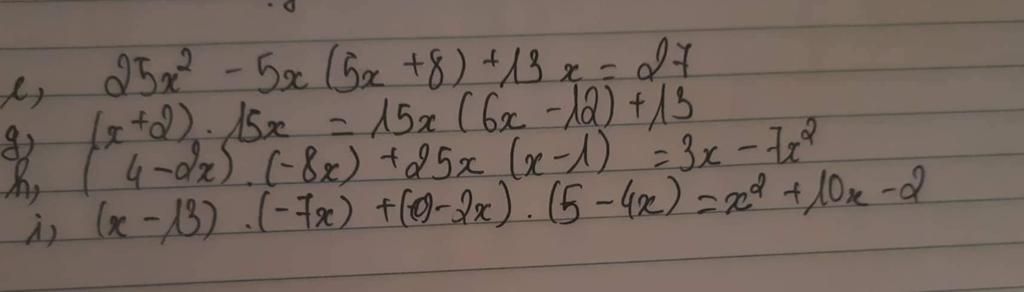 e, 25x² - 5x (5x + 8) + 13x = 27
g, (x + 2) . 15x = 15x (6x - 12) + 13
h, (4 - 2x) . (-8x) + 25x (x - 1) = 3x - 7x²
i, (x - 13) . (-7x) + ( - 2x) . (5 - 4x) = x² + 10x - 2